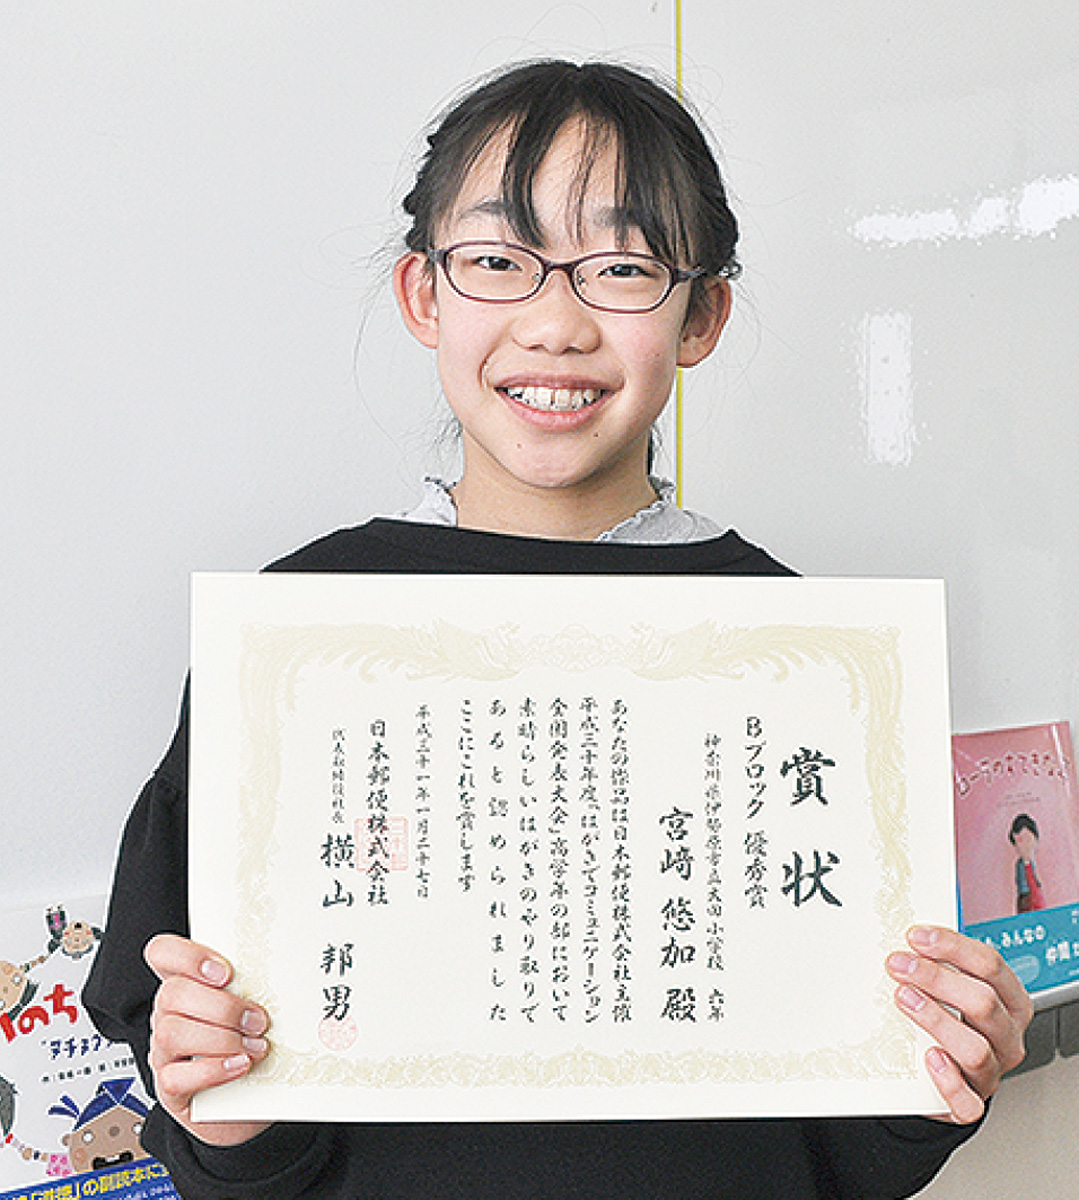 賞状
Bブロック 優秀賞
神奈川県伊勢原市立大田小学校 六年
宮﨑 悠加 殿
あなたの作品は日本郵便株式会社主催
平成三十年度「はがきでコミュニケーション
全国発表大会」高学年の部において
素晴らしいはがきのやり取りで
あると認められました
ここにこれを賞します
平成三十一年一月二十七日
日本郵便株式会社
代表取締役社長
横山 邦男
みんなの
仲間
いのち
ヌチヌグ
の副読本に